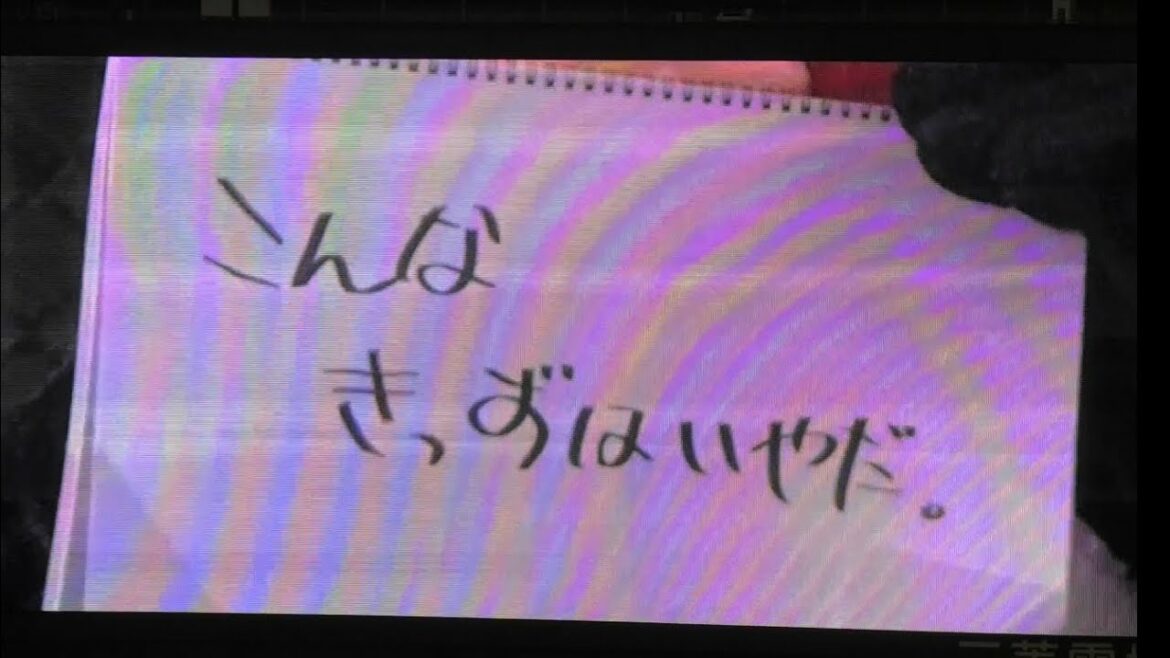 こんな
きっずはいやだ。